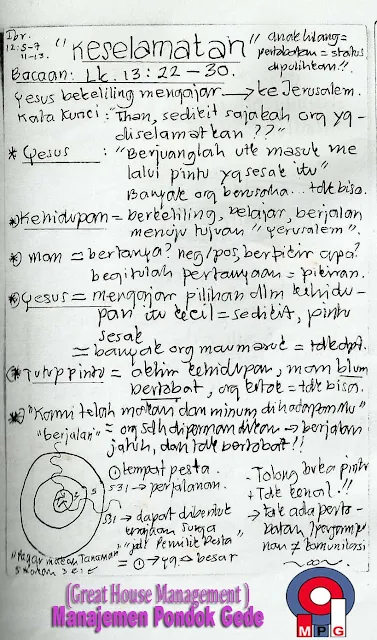 Ibr. 12:5-7 11-13.
"Keselamatan"
"anak hilang =
pertobatan = status
dipulihkan!!
Bacaan: Lk. 13:22-30.
Yesus berkeliling mengajar → ke Jerusalem.
Kata kunci: "Than, sedikit sajakah org yg
diselamatkan??"
* Yesus : "Berjuanglah utk masuk me
lalui pintu yg sesak itu"
Banyak org berusaha... tdk bisa.
* Kehidupan = berkeliling, belajar, berjalan
menuju tujuan "Yerusalem".
* man = bertanya? neg/pos, berpikir apa?
begitulah pertanyaan = pikiran.
* Yesus = mengajar pilihan dlm kehidu-
pan itu kecil = sedikit, pintu
sesak
= banyak org mau masuk = tdk dpt.
* Tutup pintu = akhir kehidupan, mam blum
bertobat, org = tdk bisa.
* "Kami telah makan dan minum dihadapanMu"
"berjalan" = org sdh → berjalan
jatuh, dan tdk bertobat!!
① tempat pesta.
S31 → perjalanan.
S31 → dapat dibentuk
kerajaan surga
"jdi Pemilik Pesta"
= ① → yg → besar
- Tolong buka pintu
+ Tdk kenal!!
→ tak ada perto-
batan,
≠ komunikasi
"Pagar makan Tanaman"
(Great House Management)
Manajemen Pondok Gede
MPG